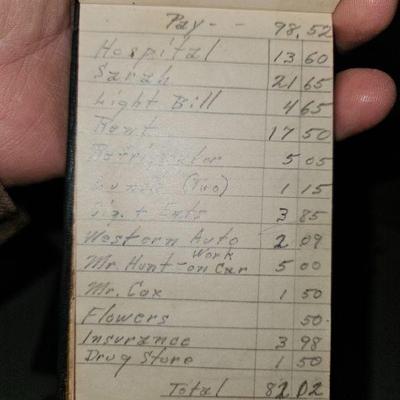 Pay - - 98.52
Hospital 13 60
Sarah 21 65
Light Bill 4 65
Rent 17 50
Refrigerator 5 05
Lunch (Two) 1 15
3 85
Western Auto 2 09
Mr. Hunt - Work on Car 5 00
Mr. Cox 1 50
Flowers 50
Insurance 3 98
Drug Store 1 50
Total 82 02